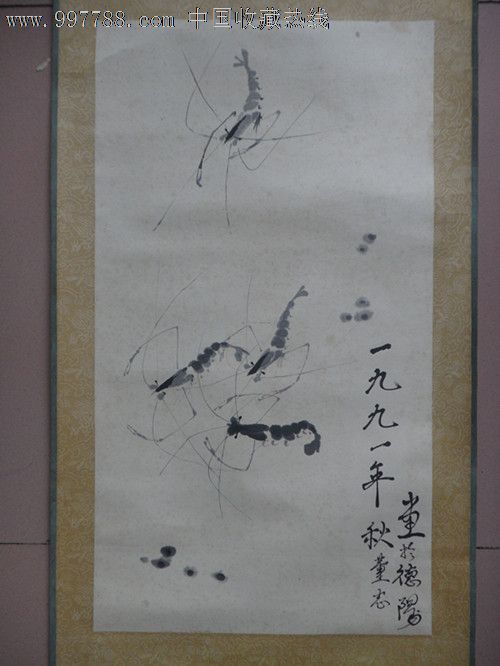 www.997788.com 中国收藏热线
一九九一年秋董
於德陽